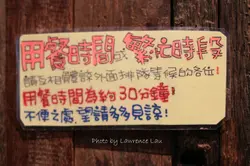 用餐時間或繁忙時段
請互相體諒外面排隊等候的各位!
用餐時間為約30分鐘!
不便之處 望請多多見諒!
Photo by Lawrence Lau